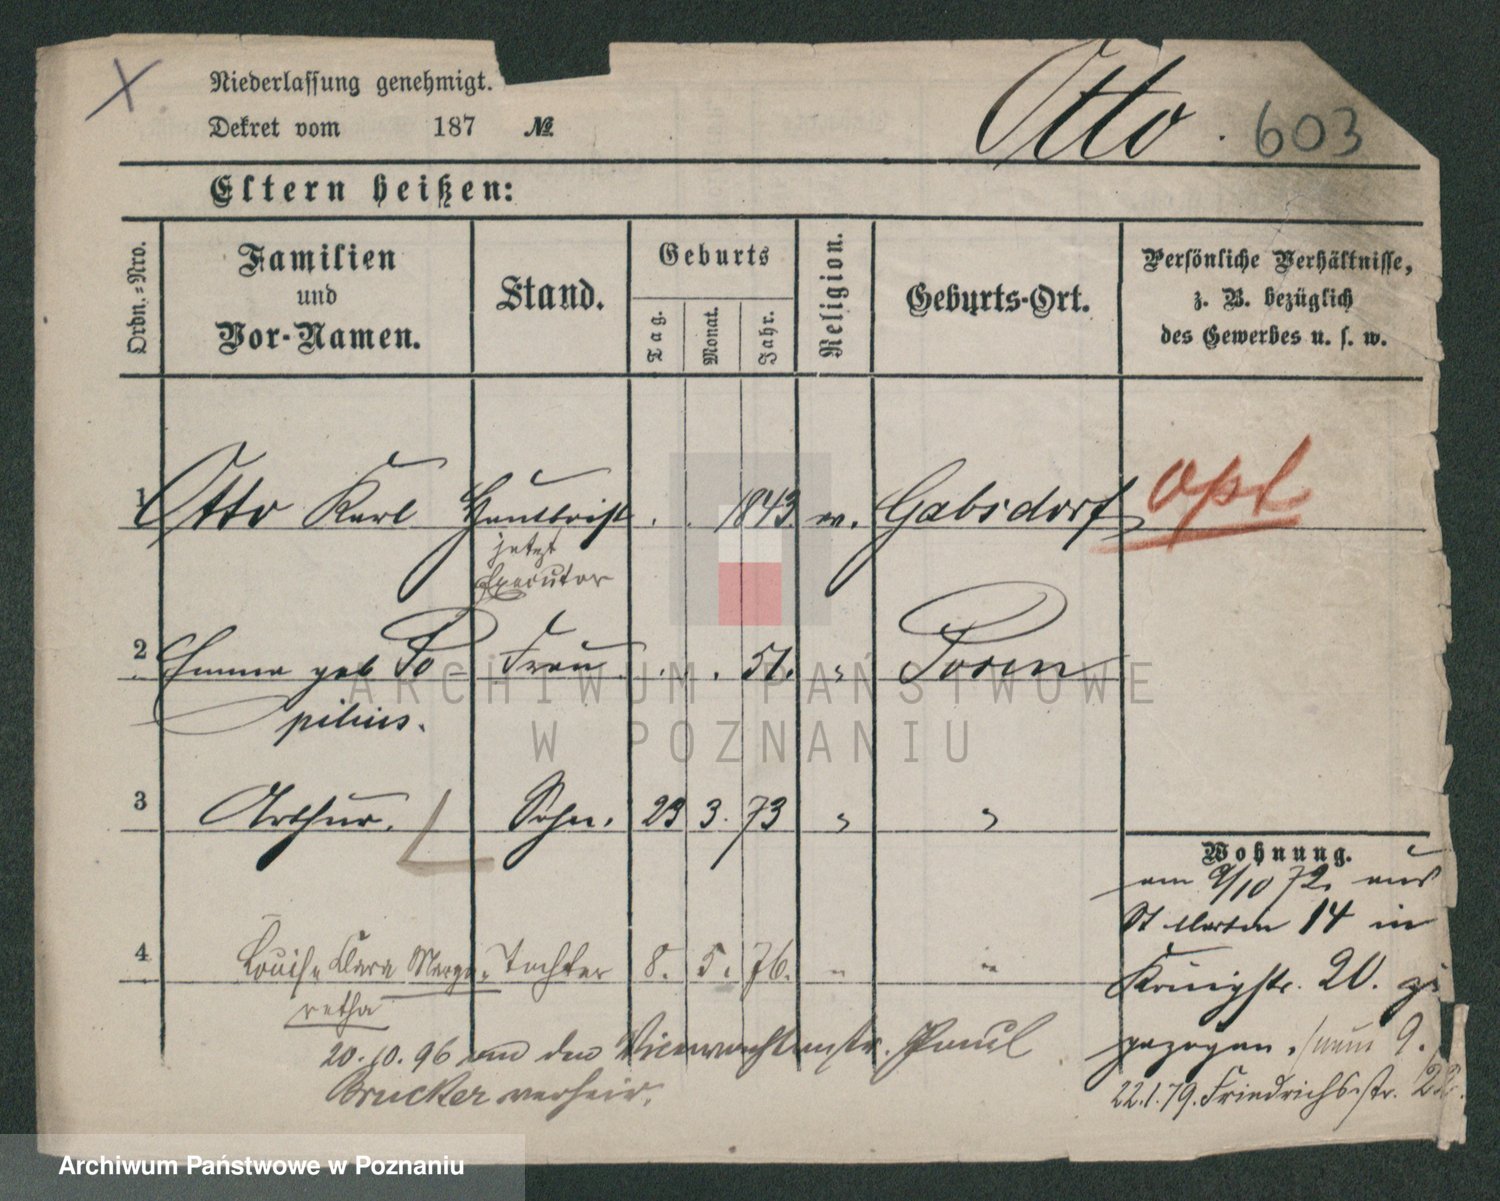 Niederlassung genehmigt.
Dekret vom 187 №
Otto. 603
Eltern heißen:
Ordn.-Nro.
Familien
und
Vor-Namen.
Stand.
Geburts
Tag.
Monat.
Jahr.
Religion.
Geburts-Ort.
Persönliche Verhältnisse,
z. B. bezüglich
des Gewerbes u. s. w.
1 Otto Karl Hautboist . . 1843 ev. Gabsdorf opt
jetzt
Executor
2 Emma geb Po= Frau . . 51. " Posen
pilius.
3 Arthur. Sohn. 23 3. 73 " "
4 Louise Clara Marga= Tochter 8. 5. 76. " "
retha
20.10.96 an den Vicewachtmstr. Paul
Brucker verheir.
Wohnung.
am 9/10 72. aus
St Martin 14 in
Königstr. 20. zu
gezogen.
22.1.79. Friedrichsstr. 22.
ARCHIWUM PAŃSTWOWE
W POZNANIU
Archiwum Państwowe w Poznaniu